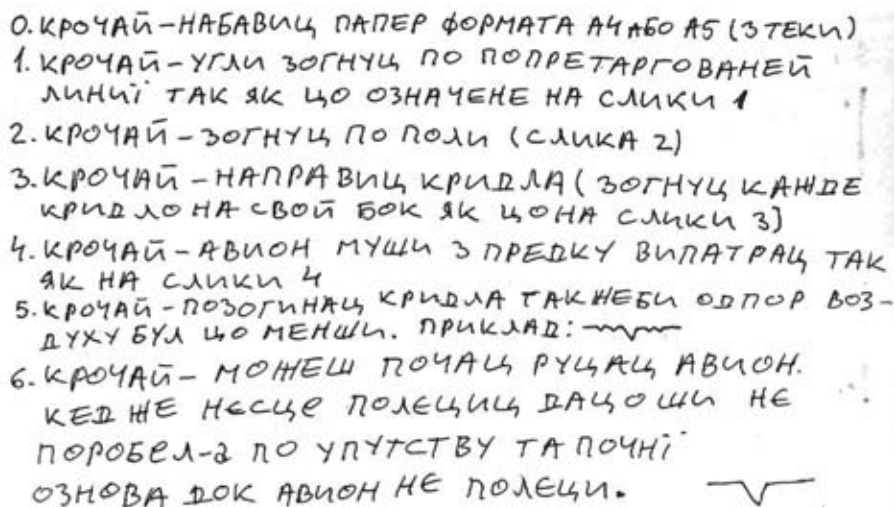 0. КРОЧАЙ-НАБАВИЦ ПАПЕР ФОРМАТА А4 АБО А5 (З ТЕКИ)
1. КРОЧАЙ-УГЛИ ЗОГНУЦ ПО ПОПРЕТАРГОВАНЕЙ
ЛИНИЇ ТАК ЯК ЦО ОЗНАЧЕНЕ НА СЛИКИ 1
2. КРОЧАЙ-ЗОГНУЦ ПО ПОЛИ (СЛИКА 2)
3. КРОЧАЙ-НАПРАВИЦ КРИДЛА (ЗОГНУЦ КАЖДЕ
КРИДЛО НА СВОЙ БОК ЯК ЦО НА СЛИКИ 3)
4. КРОЧАЙ-АВИОН МУШИ З ПРЕДКУ ВИПАТРАЦ ТАК
ЯК НА СЛИКИ 4
5. КРОЧАЙ-ПОЗОГИНАЦ КРИДЛА ТАК ЖЕБИ ОДПОР ВОЗ-
ДУХУ БУЛ ЦО МЕНШИ. ПРИКЛАД:
6. КРОЧАЙ- МОЖЕШ ПОЧАЦ РУЦАЦ АВИОН.
КЕД ЖЕ НЄСЦЕ ПОЛЄЦИЦ ДАЦО ШИ НЄ
ПОРОБЕЛ-а ПО УПУТСТВУ ТА ПОЧНЇ
ОЗНОВА ДОК АВИОН НЄ ПОЛЄЦИ.